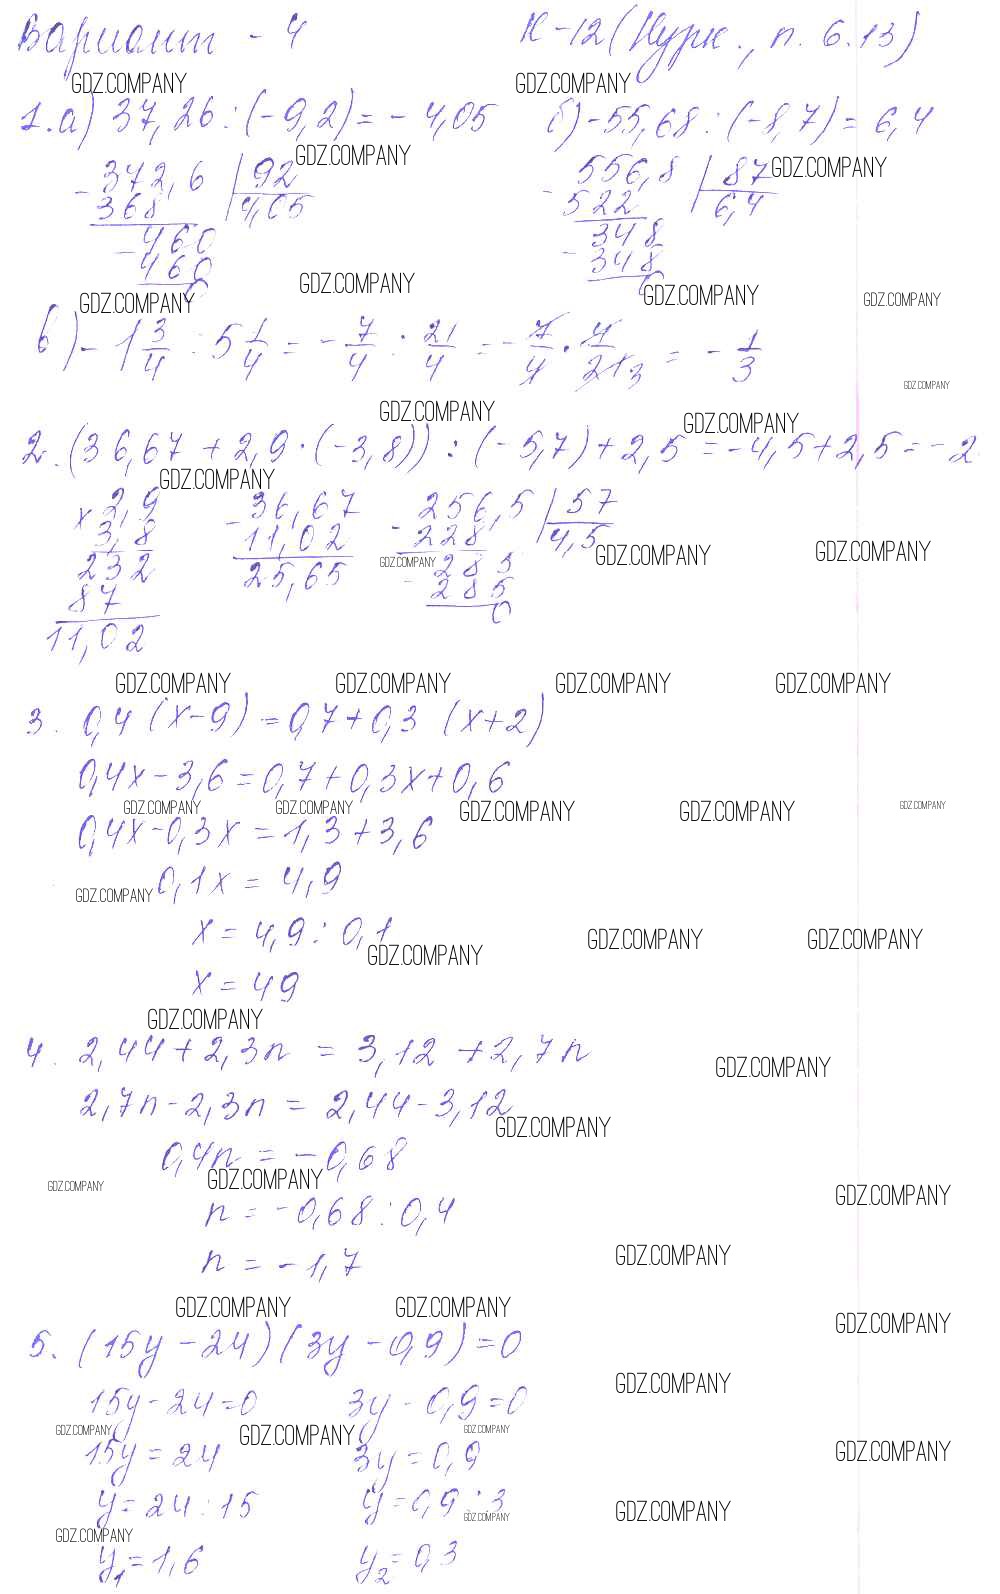 Вариант - 4 К-12 (Нурк., п. 6.13)
GDZ.COMPANY GDZ.COMPANY
1.а) 37,26 : (-9,2) = - 4,05 б) -55,68 : (-8,7) = 6,4
GDZ.COMPANY GDZ.COMPANY
- 372,6 | 92 - 556,8 | 87
368 4,05 522 6,4
- 460 348
460 - 348
0 0
GDZ.COMPANY GDZ.COMPANY GDZ.COMPANY GDZ.COMPANY
в) - 1 3/4 : 5 1/4 = - 7/4 : 21/4 = - 7/4 · 4/21 3 = - 1/3
GDZ.COMPANY
GDZ.COMPANY GDZ.COMPANY
2. (36,67 + 2,9 · (-3,8)) : (-5,7) + 2,5 = -4,5 + 2,5 = -2
GDZ.COMPANY
x 2,9 - 36,67 - 256,5 | 57
3,8 11,02 228 4,5
232 25,65 285
87 285
11,02 0
GDZ.COMPANY GDZ.COMPANY GDZ.COMPANY
GDZ.COMPANY GDZ.COMPANY GDZ.COMPANY GDZ.COMPANY
3. 0,4 (x-9) = 0,7 + 0,3 (x+2)
0,4x - 3,6 = 0,7 + 0,3x + 0,6
GDZ.COMPANY GDZ.COMPANY GDZ.COMPANY GDZ.COMPANY GDZ.COMPANY
0,4x - 0,3x = 1,3 + 3,6
0,1x = 4,9
GDZ.COMPANY
x = 4,9 : 0,1
GDZ.COMPANY GDZ.COMPANY GDZ.COMPANY
x = 49
GDZ.COMPANY
4. 2,44 + 2,3n = 3,12 + 2,7n
GDZ.COMPANY
2,7n - 2,3n = 2,44 - 3,12
GDZ.COMPANY
0,4n = - 0,68
GDZ.COMPANY GDZ.COMPANY GDZ.COMPANY
n = -0,68 : 0,4
n = -1,7
GDZ.COMPANY
GDZ.COMPANY GDZ.COMPANY GDZ.COMPANY
5. (15y - 24)(3y - 0,9) = 0
GDZ.COMPANY
15y - 24 = 0 3y - 0,9 = 0
GDZ.COMPANY GDZ.COMPANY GDZ.COMPANY
15y = 24 3y = 0,9
GDZ.COMPANY
y = 24 : 15 y = 0,9 : 3
GDZ.COMPANY GDZ.COMPANY
GDZ.COMPANY
y₁ = 1,6 y₂ = 0,3